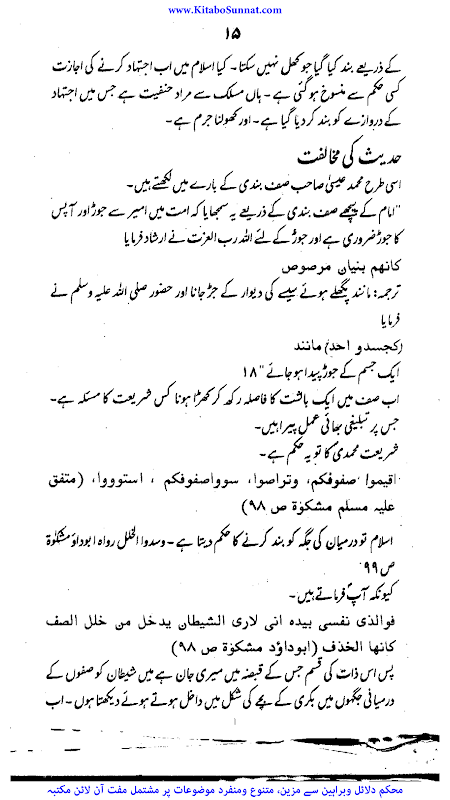 www.KitaboSunnat.com
۱۵
کے ذریعے بند کیا گیا جو کھل نہیں سکتا۔ کیا اسلام میں اب اجتہاد کرنے کی اجازت
کسی حکم سے منسوخ ہو گئی ہے۔ ہاں مسلک سے مراد حنفیت ہے جس میں اجتہاد
کے دروازے کو بند کر دیا گیا ہے۔ اور کھولنا جرم ہے۔
حدیث کی مخالفت
اسی طرح محمد عیسیٰ صاحب صف بندی کے بارے میں لکھتے ہیں۔
"امام کے پیچھے صف بندی کے ذریعے یہ سمجھایا کہ امت میں امیر سے جوڑ اور آپس
کا جوڑ ضروری ہے اور جوڑ کے لئے اللہ رب العزت نے ارشاد فرمایا
کانھم بنیان مرصوص
ترجمہ: مانند پگھلے ہوئے سیسے کی دیوار کے جڑ جانا اور حضور صلی اللہ علیہ وسلم نے
فرمایا
(کجسدو احد) مانند
ایک جسم کے جوڑ پیدا ہو جائے" ۱۸
اب صف میں ایک بالشت کا فاصلہ رکھ کر کھڑا ہونا کس شریعت کا مسئلہ ہے۔
جس پر تبلیغی بھائی عمل پیرا ہیں۔
شریعت محمدی کا تو یہ حکم ہے۔
اقیموا صفوفکم، وتراصوا، سوواصفوفکم ، استوووا، (متفق
علیہ مسلم مشکوٰۃ ص ۹۸)
اسلام تو درمیان کی جگہ کو بند کرنے کا حکم دیتا ہے۔ وسدوا الخلل رواہ ابوداؤد مشکوٰۃ
ص ۹۹
کیونکہ آپؐ فرماتے ہیں۔
فوالذی نفسی بیدہ انی لاری الشیطان یدخل من خلل الصف
کانھا الخذف (ابوداؤد مشکوٰۃ ص ۹۸)
پس اس ذات کی قسم جس کے قبضہ میں میری جان ہے میں شیطان کو صفوں کے
درمیانی جگہوں میں بکری کے بچے کی شکل میں داخل ہوتے ہوئے دیکھتا ہوں۔ اب
محکم دلائل وبراہین سے مزین، متنوع ومنفرد موضوعات پر مشتمل مفت آن لائن مکتبہ